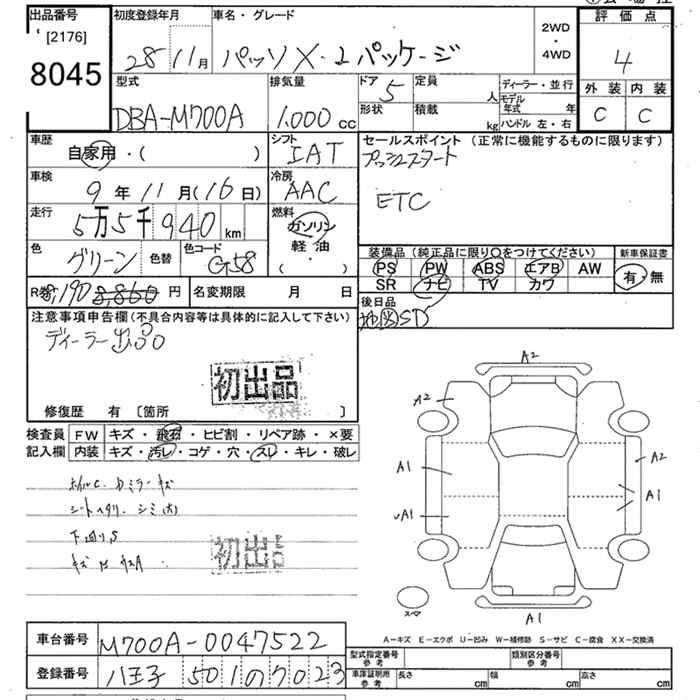 出品番号
[2176]
8045
初度登録年月
28 11月
車名・グレード
パッソ X・Lパッケージ
2WD
・
4WD
評価点
4
外装 内装
C C
型式
DBA-M700A
排気量
1,000 cc
ドア 5
形状
定員 人
積載 kg
ディーラー・並行
モデル年式 年
ハンドル 左・右
車歴
自家用・( )
シフト
IAT
セールスポイント (正常に機能するものに限ります)
プッシュスタート
ETC
車検
9年11月(16日)
冷房
AAC
走行
5万5千940 km
燃料
ガソリン
軽油
( ・ )
色
グリーン
色替
色コード
G58
装備品 (純正品に限り○をつけてください)
PS PW ABS エアB AW
SR ナビ TV カワ
新車保証書
有・無
R券 8,190 8,860 円
名変期限 月 日
後日品
地図SD
注意事項申告欄 (不具合内容等は具体的に記入して下さい)
初出品
修復歴 有 [箇所 ]
検査員
記入欄
FW キズ・飛石・ヒビ割・リペア跡・×要
内装 キズ・汚レ・コゲ・穴・スレ・キレ・破レ
シートヘタリ シミ(大)
初出品
A2
A2
A1
A2
A1
A1
A1
スペア
A-キズ E-エクボ U-凹み W-補修跡 S-サビ C-腐食 XX-交換済
車台番号
M700A-0047522
登録番号
八王子 501 の 7023
型式指定番号
参考
類別区分番号
参考
車庫証明用
参考
長さ cm
幅 cm
高さ cm